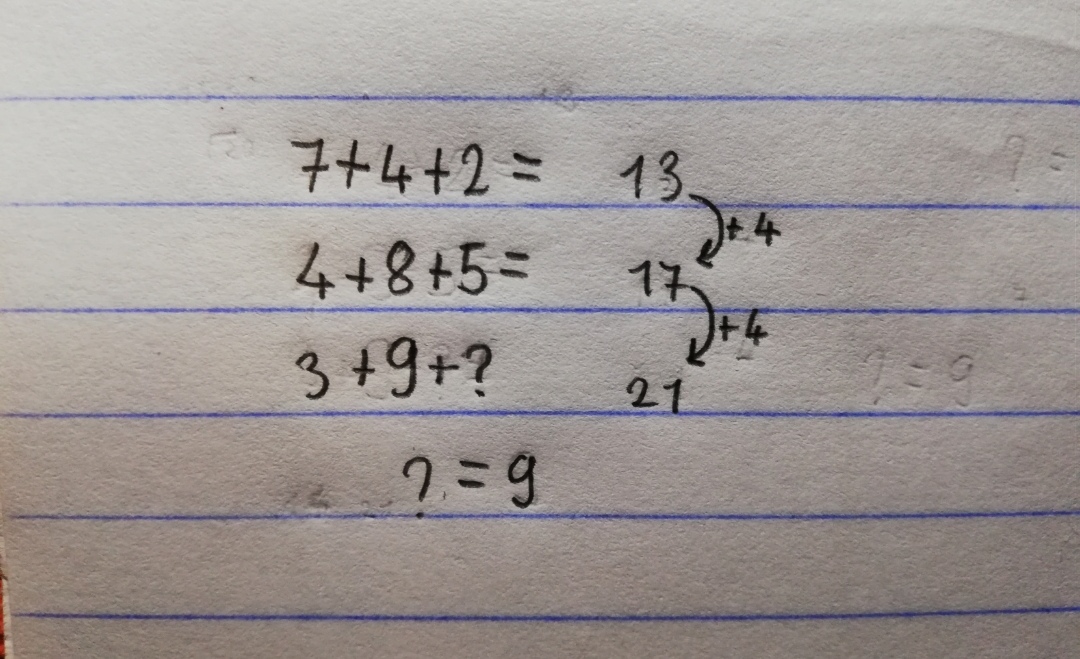 7+4+2= 13
+4
4+8+5= 17
+4
3+9+? 21
?=9